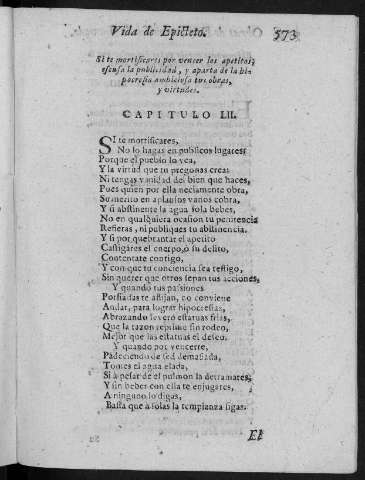 Vida de Epicteto. 573
Si te mortificares por vencer los apetitos,
escusa la publicidad, y aparta de la hi-
pocresia ambiciosa tus obras,
y virtudes.
CAPITULO LII.
SI te mortificares,
No lo hagas en publicos lugares:
Porque el pueblo lo vea,
Y la virtud que tu pregonas creas
Ni tengas vanidad del bien que haces,
Pues quien por ella neciamente obra,
Su merito en aplausos vanos cobra,
Y si abstinente la agua sola bebes,
No en qualquiera ocasion tu penitencia
Refieras, ni publiques tu abstinencia.
Y si por quebrantar el apetito
Castigáres el cuerpo, ò su delito,
Contentate contigo,
Y con que tu conciencia sea testigo,
Sin querer que otros sepan tus acciones,
Y quando tus passiones
Porfiadas te aflijan, no conviene
Andar, para lograr hipocresias,
Abrazando severo estatuas frias,
Que la razon reprime sin rodeo,
Mejor que las estatuas el deseo.
Y quando por vencerte,
Padeciendo de sed demasiada,
Tomes el agua elada,
Si à pesar de el pulmon la derramares,
Y sin beber con ella te enjugares,
A ninguno lo digas,
Basta que à solas la templanza sigas.
El